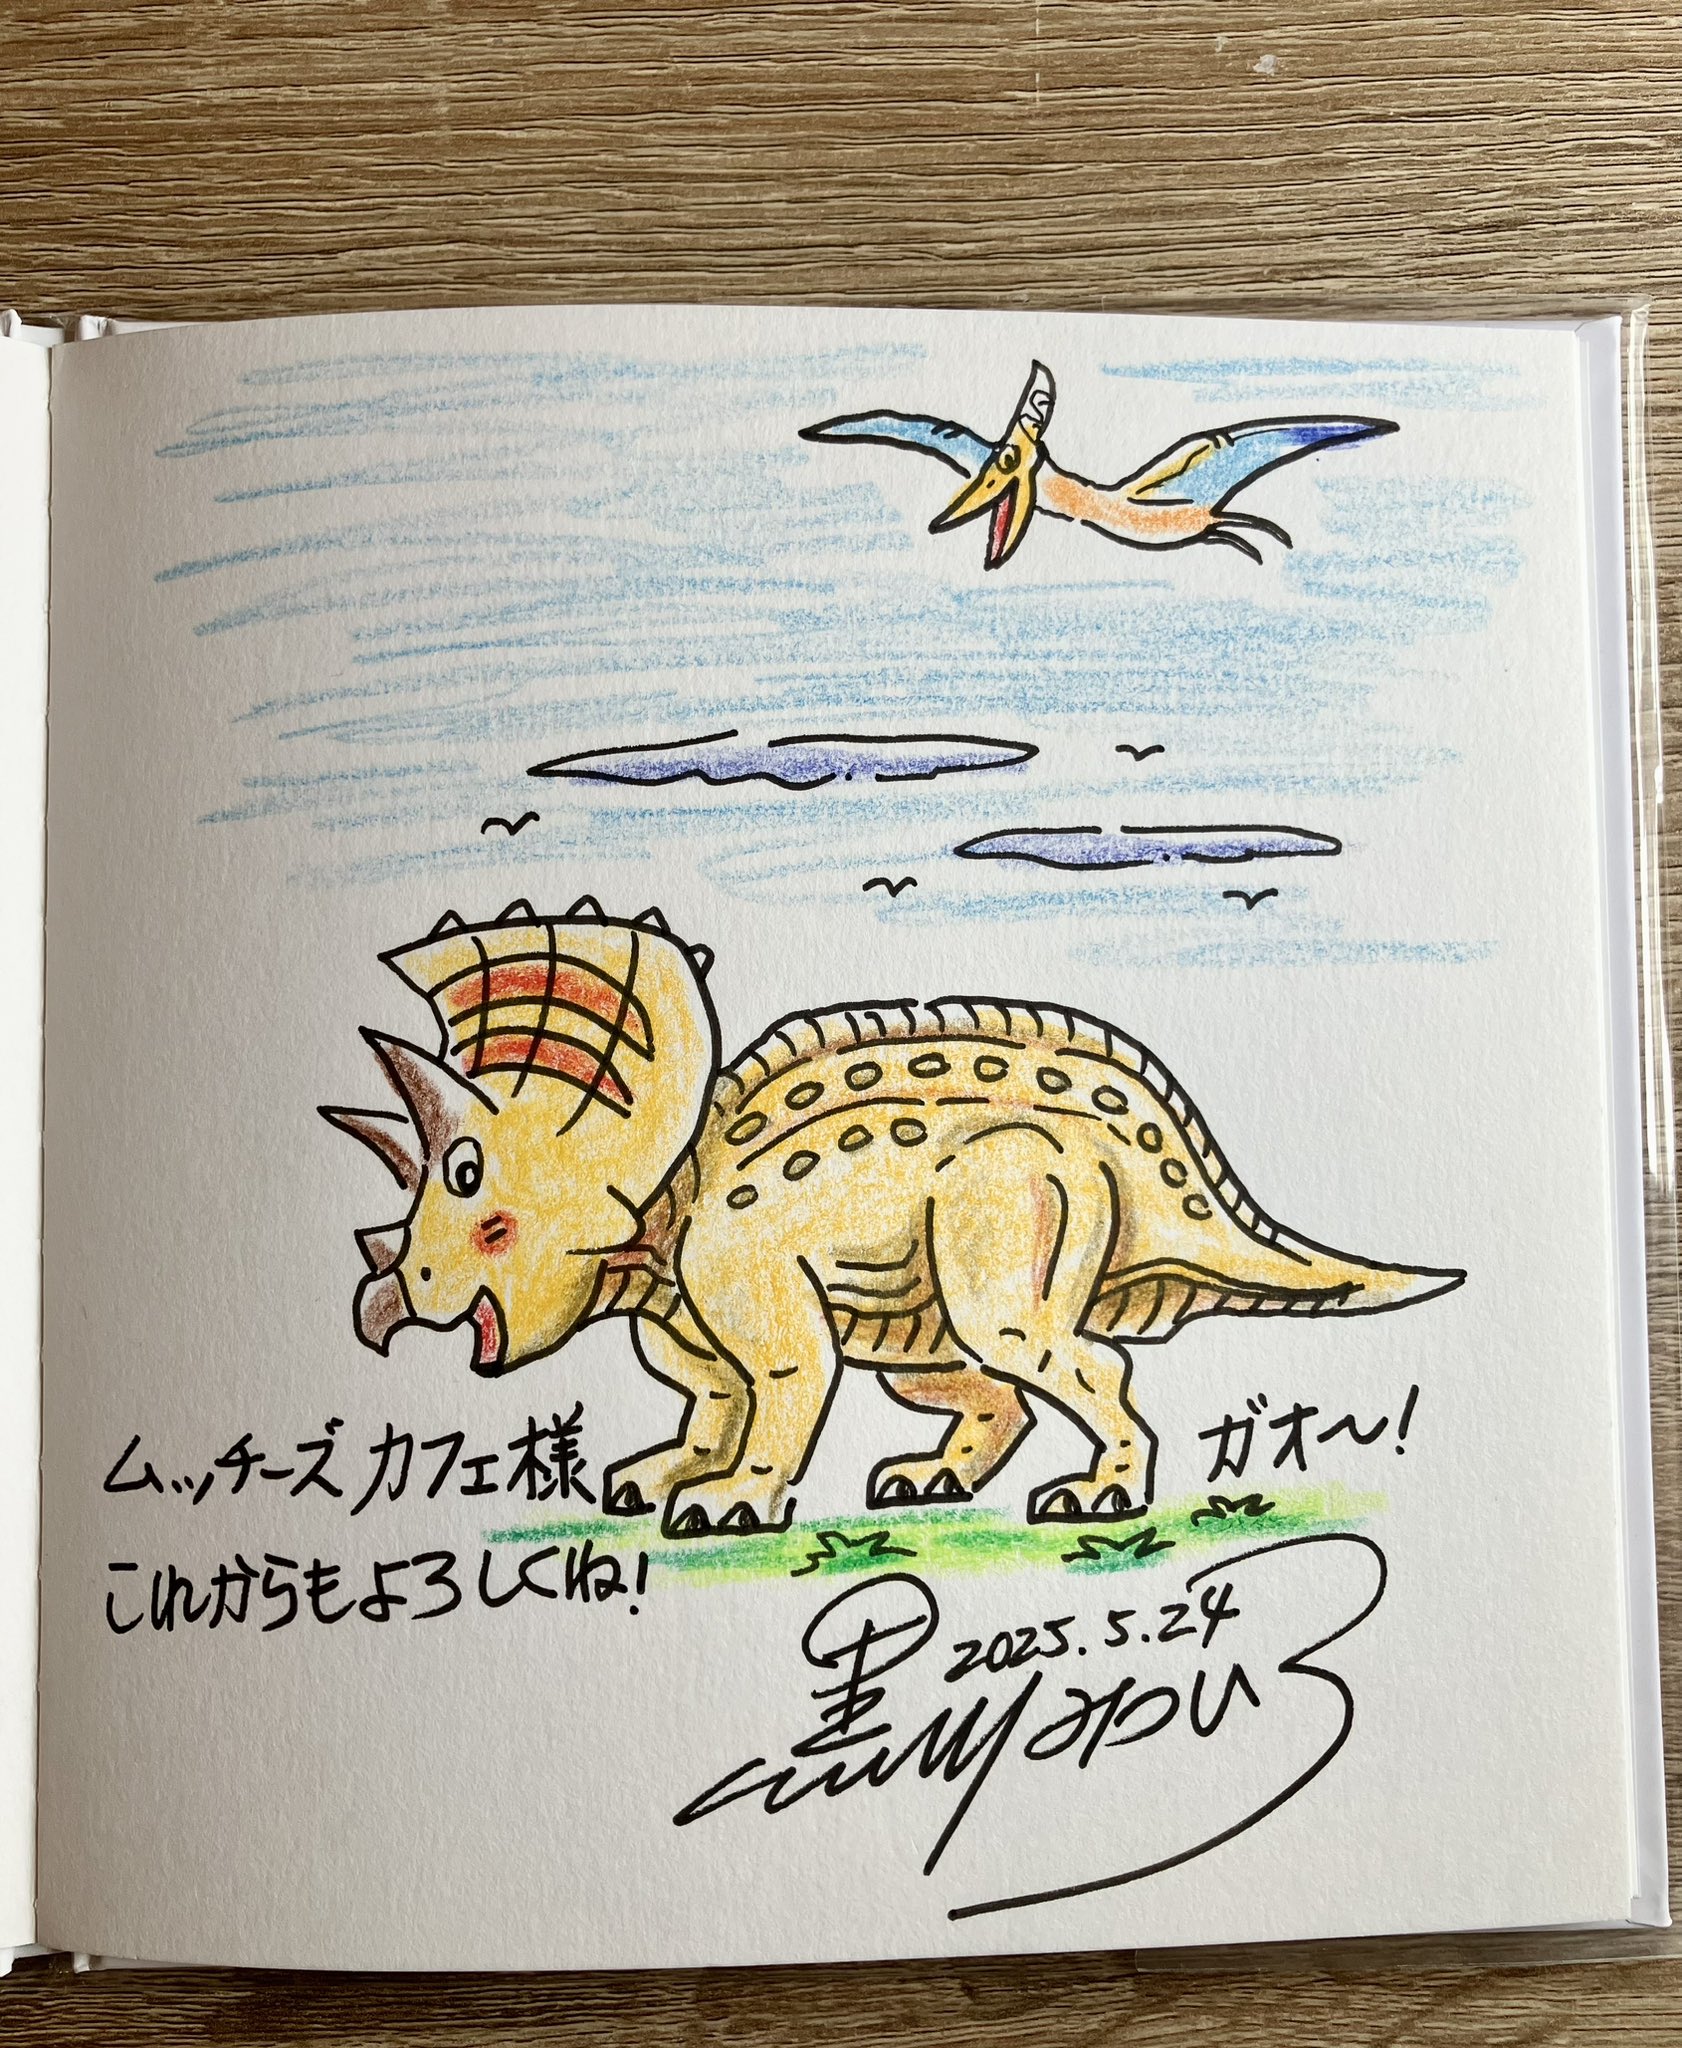 ムッチーズカフェ様
ガオ〜!
これからもよろしくね!
2025.5.24
黒川みつひろ